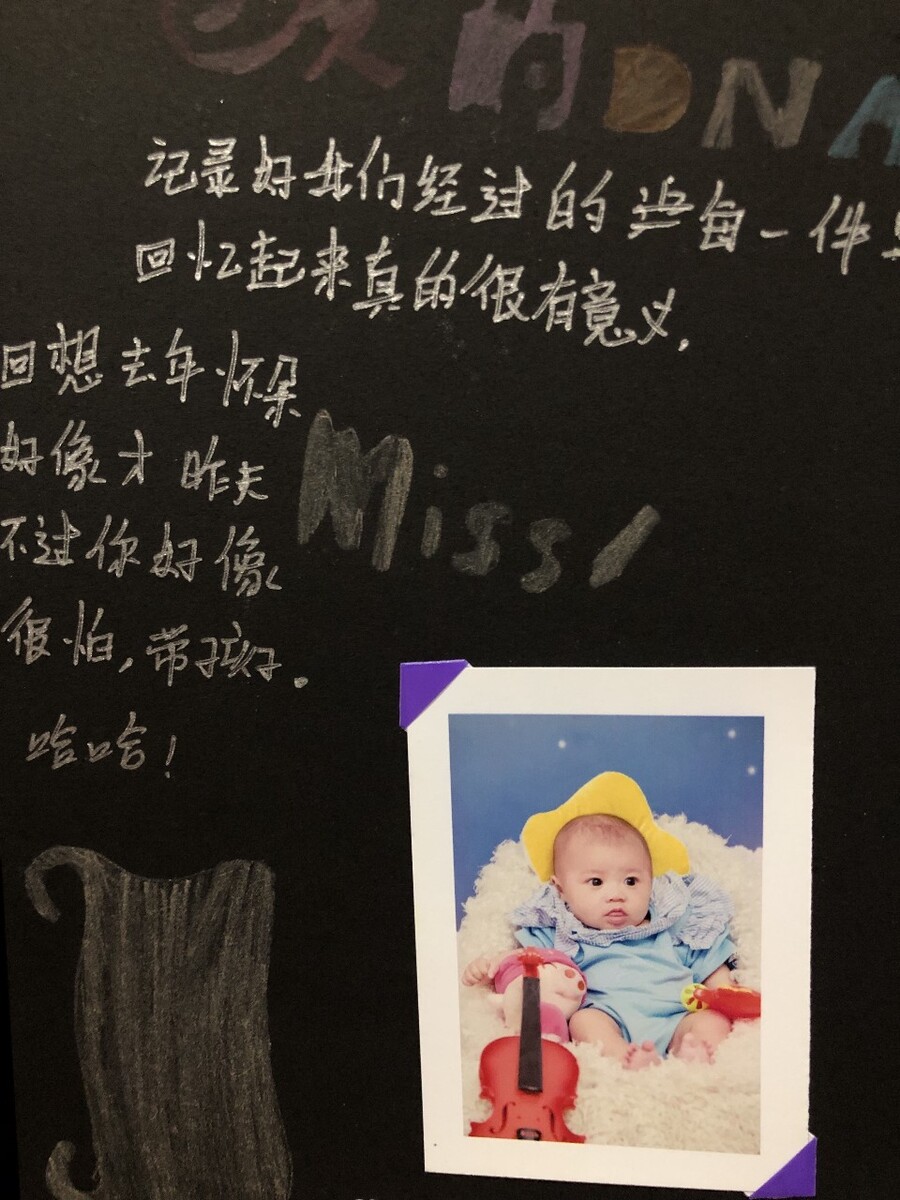 的DNA
记录好我们经过的每一件
回忆起来真的很有意义,
回想去年怀朵
好像才昨天
不过你好像
很怕,带孩子.
哈哈!
Miss